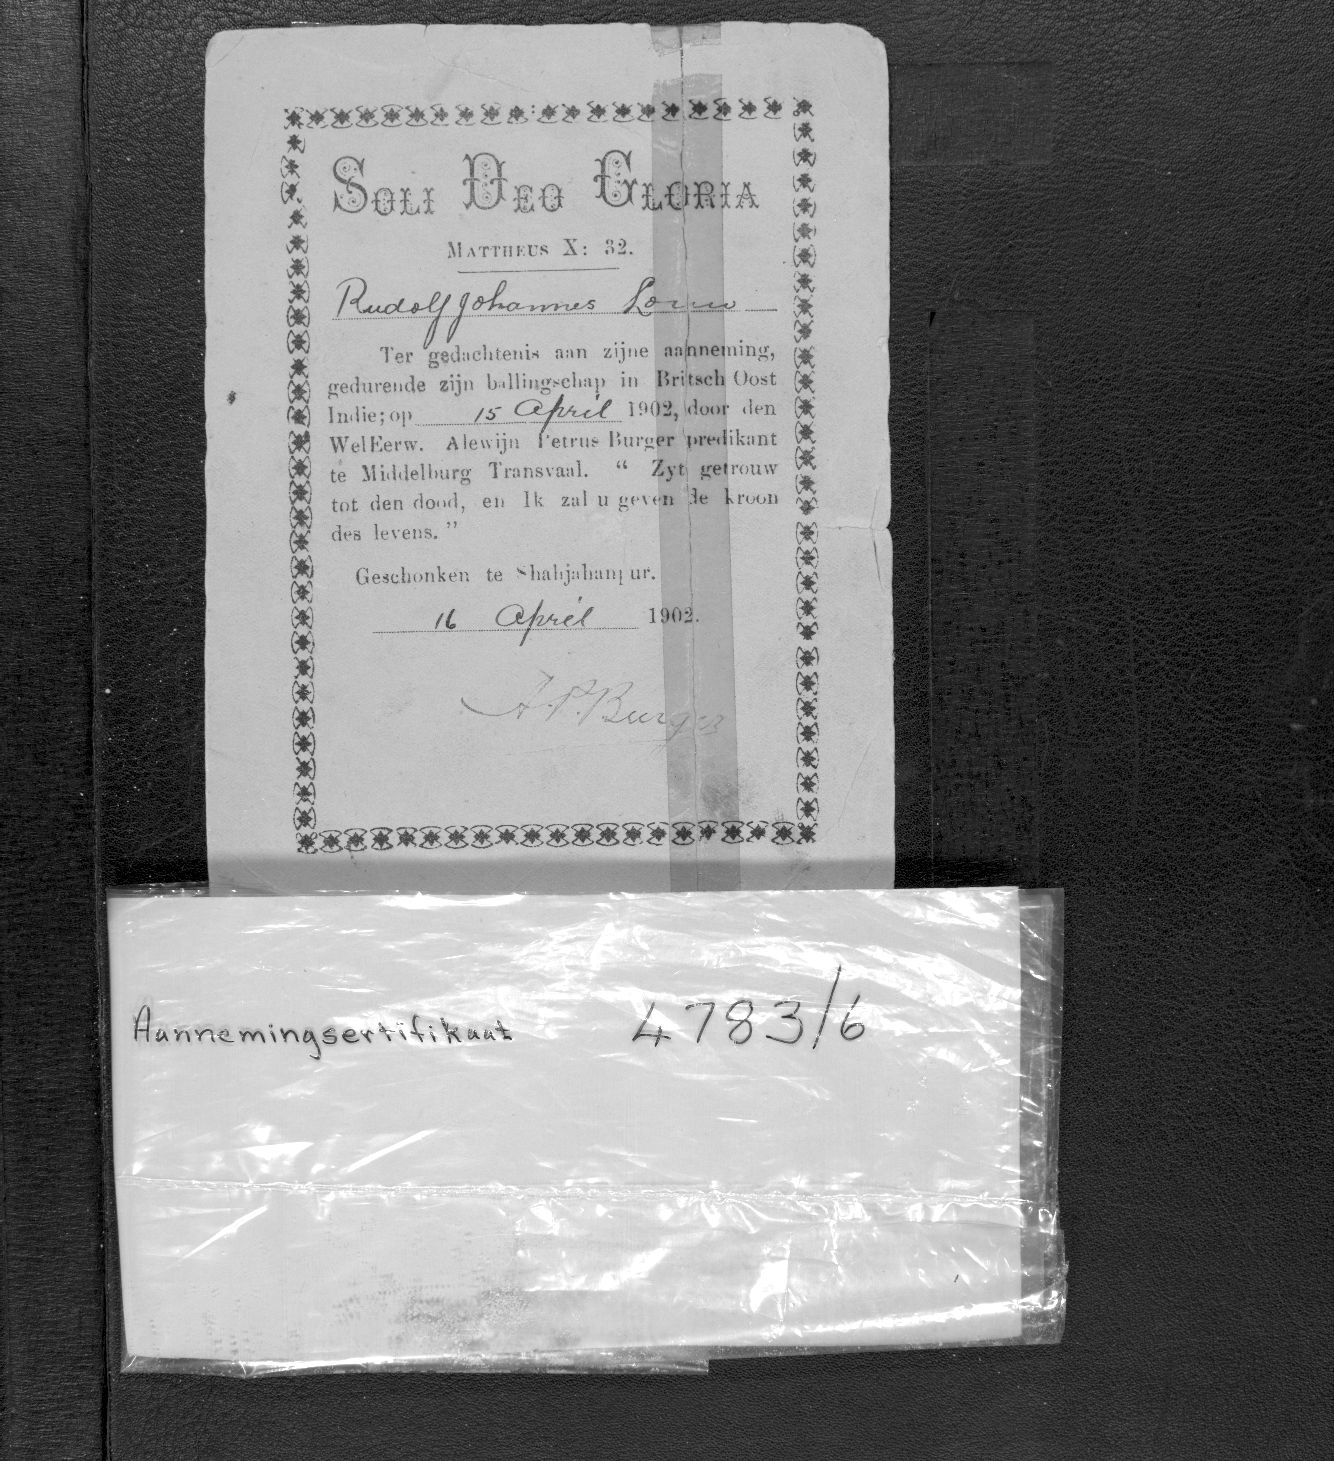 SOLI DEO GLORIA
MATTHEUS X: 32.
Rudolf Johannes Louw
Ter gedachtenis aan zijne aanneming,
gedurende zijn ballingschap in Britsch Oost
Indie; op 15 April 1902, door den
WelEerw. Alewijn Petrus Burger predikant
te Middelburg Transvaal. “ Zyt getrouw
tot den dood, en Ik zal u geven de kroon
des levens.”
Geschonken te Shahjahanpur.
16 April 1902.
A.P. Burger
Aannemingsertifikaat 4783/6